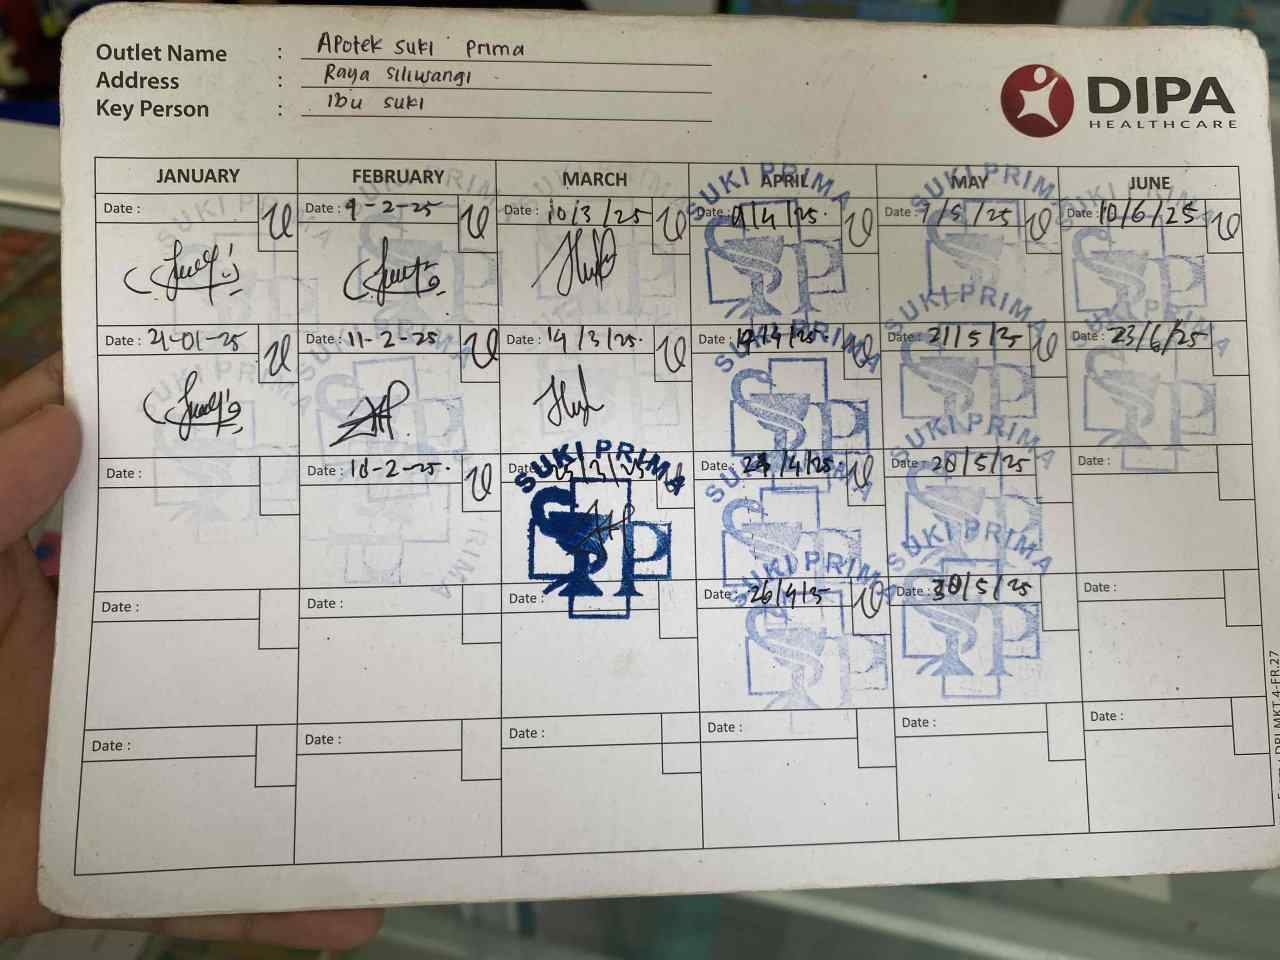 Outlet Name : Apotek suki prima
Address : Raya siliwangi
Key Person : Ibu suki
DIPA
HEALTHCARE
JANUARY FEBRUARY MARCH APRIL MAY JUNE
Date : Date : 9-2-25 Date : 10/3/25 Date : 9/4/25. Date : 7/5/25 Date : 10/6/25
SUKI PRIMA SUKI PRIMA SUKI PRIMA
Date : 21-01-25 Date : 11-2-25 Date : 14/3/25. Date : Date : 21/5/25 Date : 23/6/25
SUKI PRIMA SUKI PRIMA
Date : Date : Date : Date : Date : 20/5/25 Date :
SUKI PRIMA SUKI PRIMA SUKI PRIMA
Date : Date : Date : Date : 26/4/25 Date : 30/5/25 Date :
SUKI PRIMA SUKI PRIMA
Date : Date : Date : Date : Date : Date :